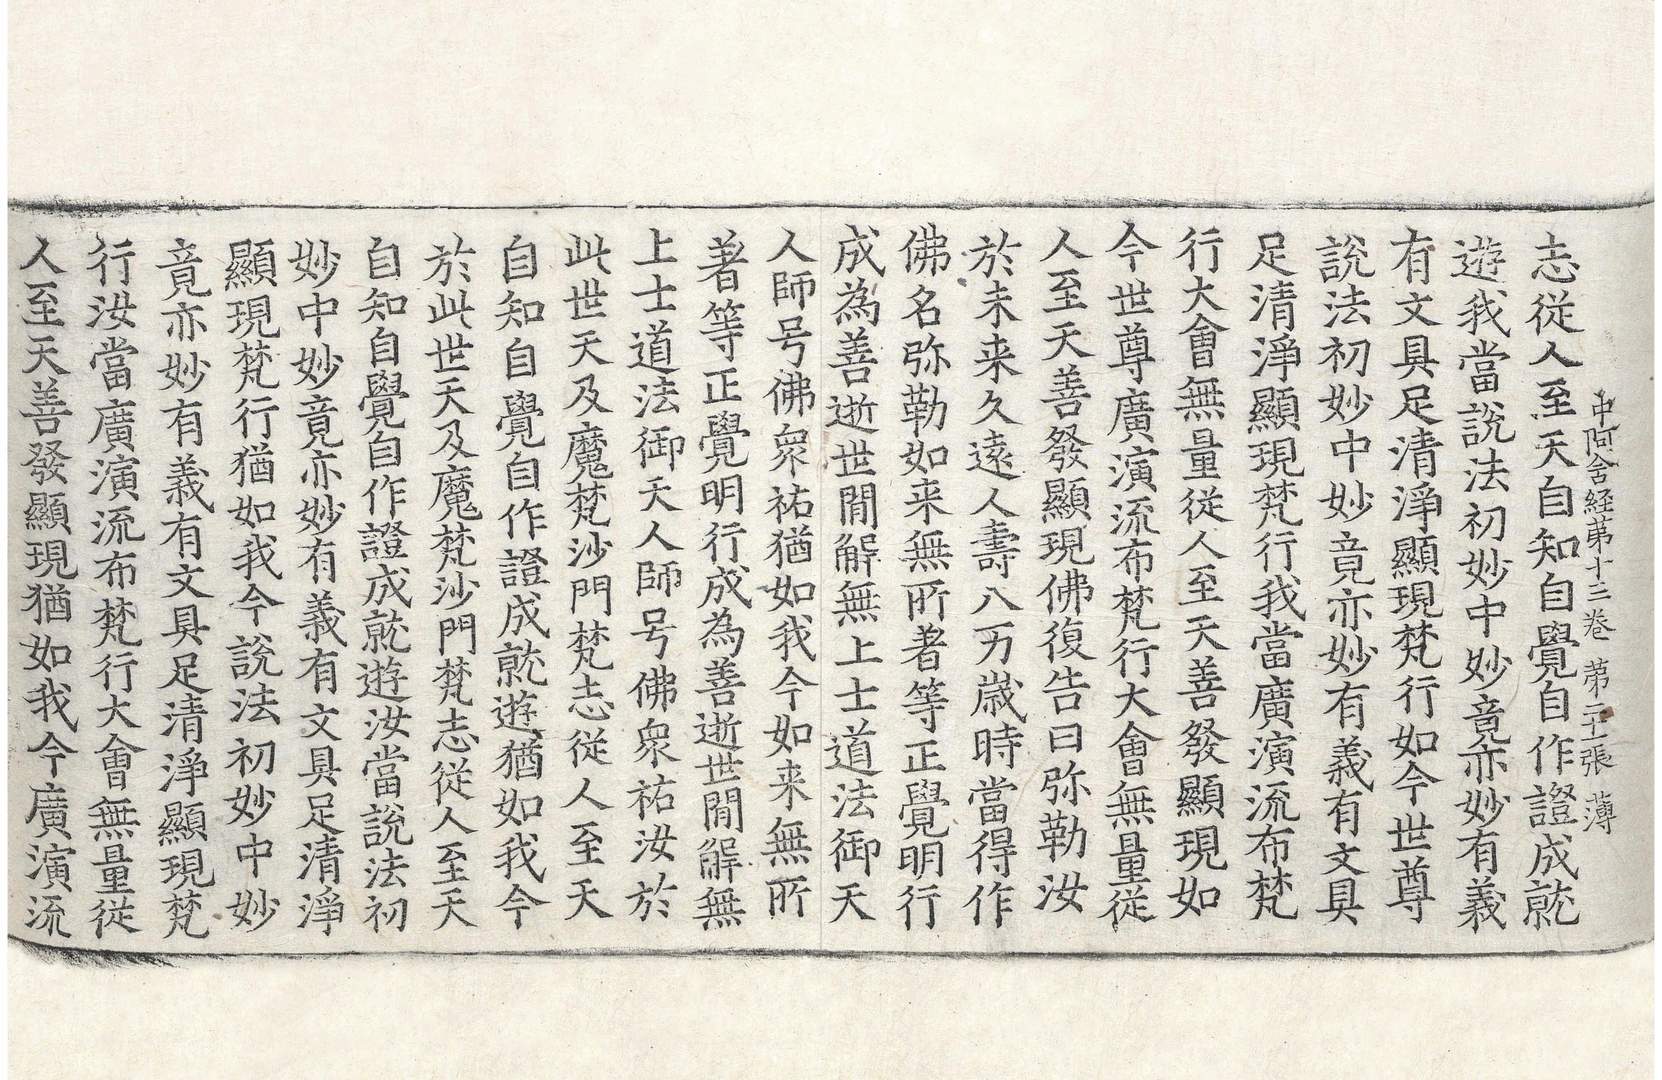 中阿含経第十三卷 第二十一張 薄
志従人至天自知自覺自作證成就
遊我當說法初妙中妙竟亦妙有義
有文具足清淨顯現梵行如今世尊
說法初妙中妙竟亦妙有義有文具
足清淨顯現梵行我當廣演流布梵
行大會無量従人至天善發顯現如
今世尊廣演流布梵行大會無量従
人至天善發顯現佛復告曰弥勒汝
於未来久遠人壽八万歲時當得作
佛名弥勒如来無所著等正覺明行
成為善逝世間解無上士道法御天
人師号佛衆祐猶如我今如来無所
著等正覺明行成為善逝世間解無
上士道法御天人師号佛衆祐汝於
此世天及魔梵沙門梵志従人至天
自知自覺自作證成就遊猶如我今
於此世天及魔梵沙門梵志従人至天
自知自覺自作證成就遊汝當說法初
妙中妙竟亦妙有義有文具足清淨
顯現梵行猶如我今說法初妙中妙
竟亦妙有義有文具足清淨顯現梵
行汝當廣演流布梵行大會無量従
人至天善發顯現猶如我今廣演流